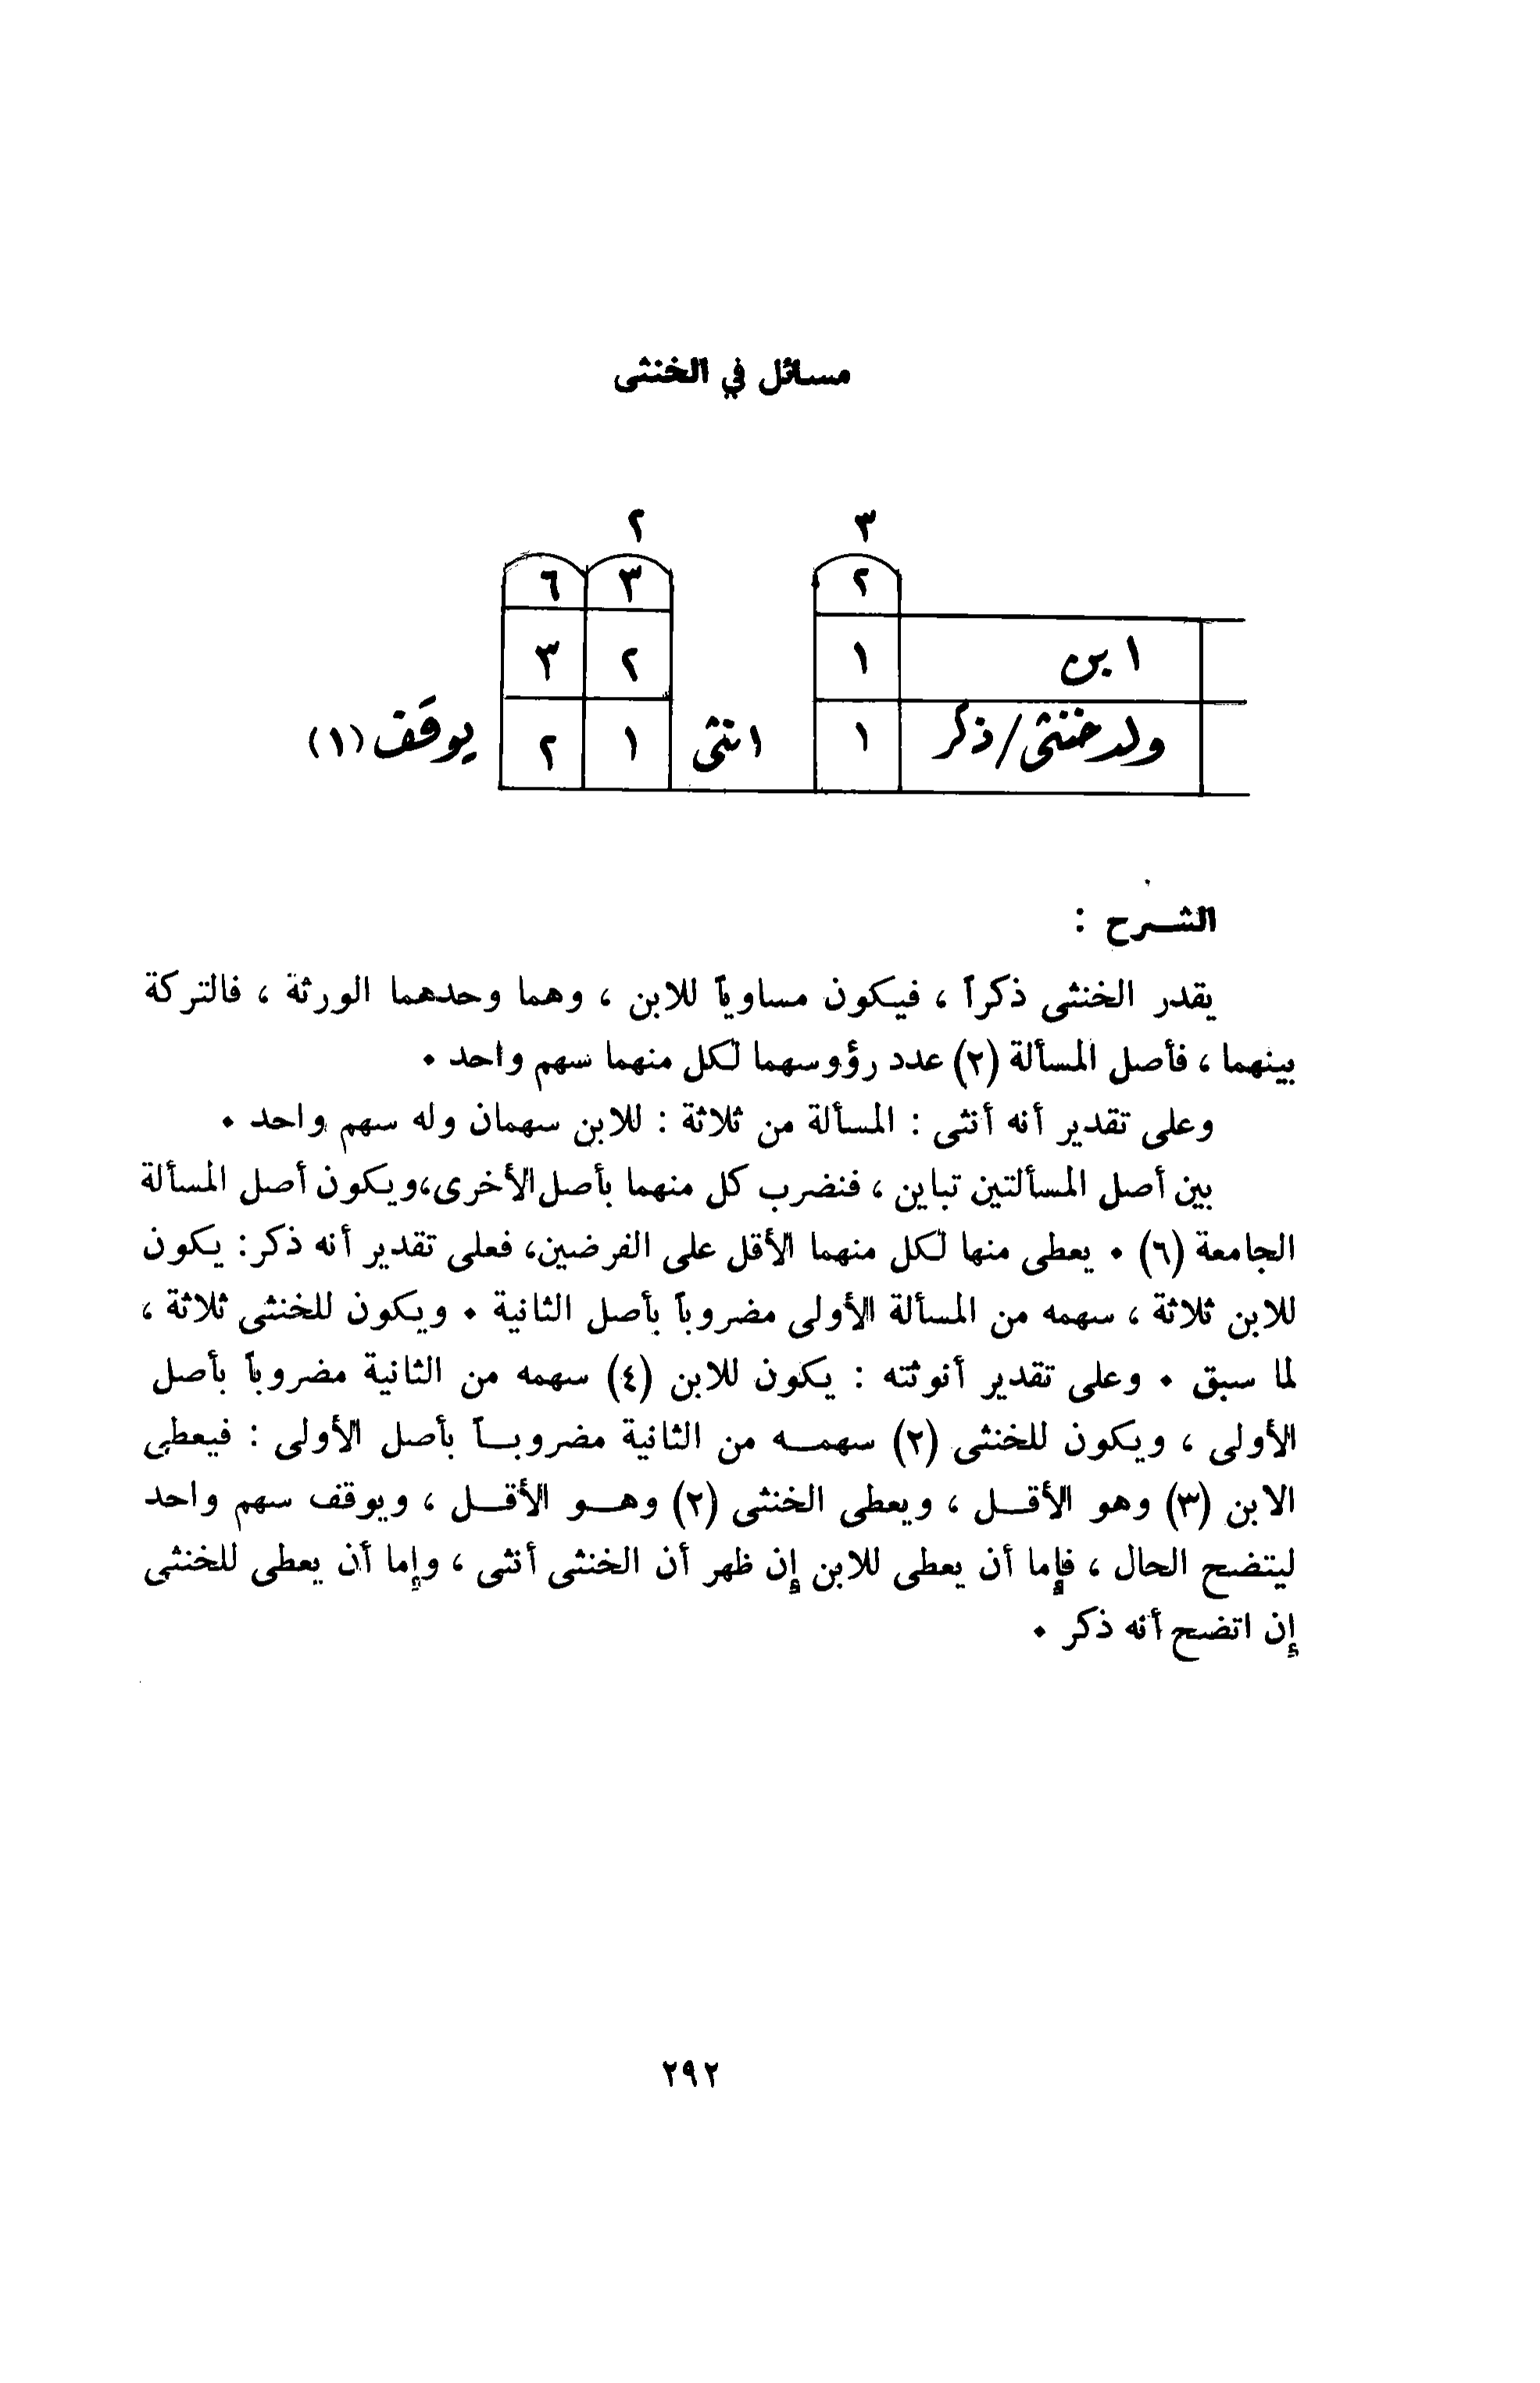 مسائل في الخنثى
٣ ٢
٢ ٣ ٦
ابن ١ ٢ ٣
ولد خنثى/ذكر ١ انثى ١ ٢ يوقف (١)
الشـرح :
يقدر الخنثى ذكراً ، فيكون مساوياً للابن ، وهما وحدهما الورثة ، فالتركة
بينهما ، فأصل المسألة (٢) عدد رؤوسهما لكل منهما سهم واحد ٠
وعلى تقدير أنه أنثى : المسألة من ثلاثة : للابن سهمان وله سهم واحد ٠
بين أصل المسألتين تباين ، فنضرب كل منهما بأصل الأخرى،ويكون أصل المسألة
الجامعة (٦) ٠ يعطى منها لكل منهما الأقل على الفرضين، فعلى تقدير أنه ذكر: يكون
للابن ثلاثة ، سهمه من المسألة الأولى مضروباً بأصل الثانية ٠ ويكون للخنثى ثلاثة ،
لما سبق ٠ وعلى تقدير أنوثته : يكون للابن (٤) سهمه من الثانية مضروباً بأصل
الأولى ، ويكون للخنثى (٢) سهمـه من الثانية مضروبـاً بأصل الأولى : فيعطى
الابن (٣) وهو الأقـل ، ويعطى الخنثى (٢) وهـو الأقـل ، ويوقف سهم واحد
ليتضح الحال ، فإما أن يعطى للابن إن ظهر أن الخنثى أنثى ، وإما أن يعطى للخنثى
إن اتضح أنه ذكر ٠
٢٩٢